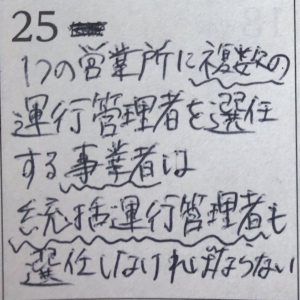 25
1つの営業所に複数の
運行管理者を選任
する事業者は
統括運行管理者も
選任しなければならない